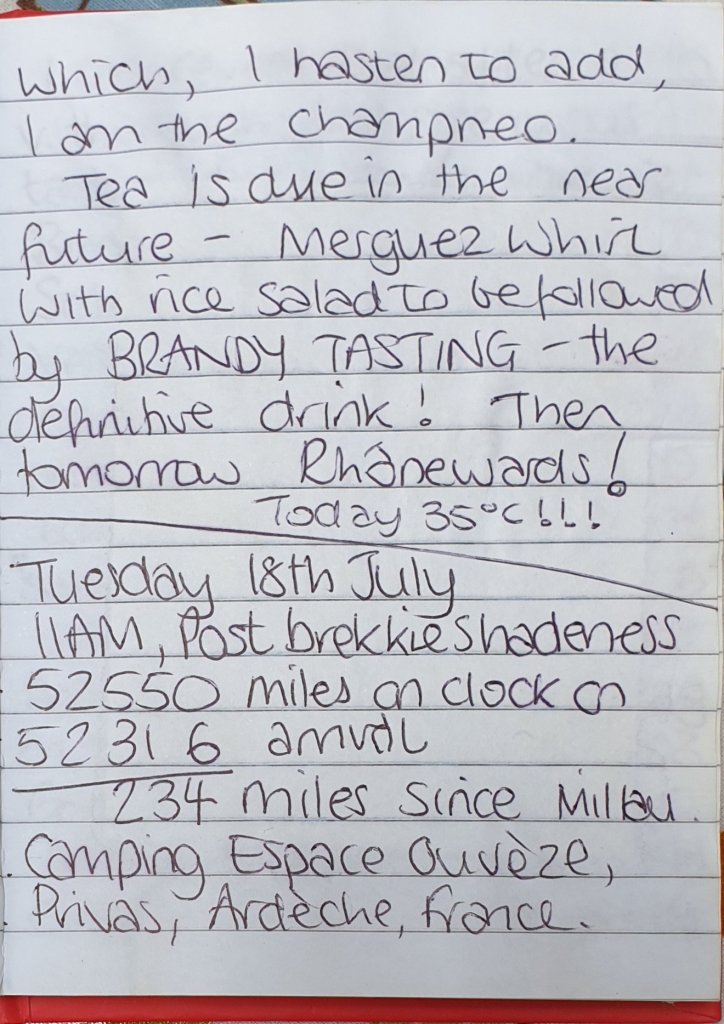 which, I hasten to add,
I am the champneo.
Tea is due in the near
future - Merguez Whirl
with rice salad to be followed
by BRANDY TASTING - the
definitive drink! Then
tomorrow Rhônewards!
Today 35°C!!!
Tuesday 18th July
11AM, Post brekkie shadeness
52550 miles on clock on
52316 arrival
234 miles since Millau.
Camping Espace Ouvèze,
Privas, Ardèche, France.